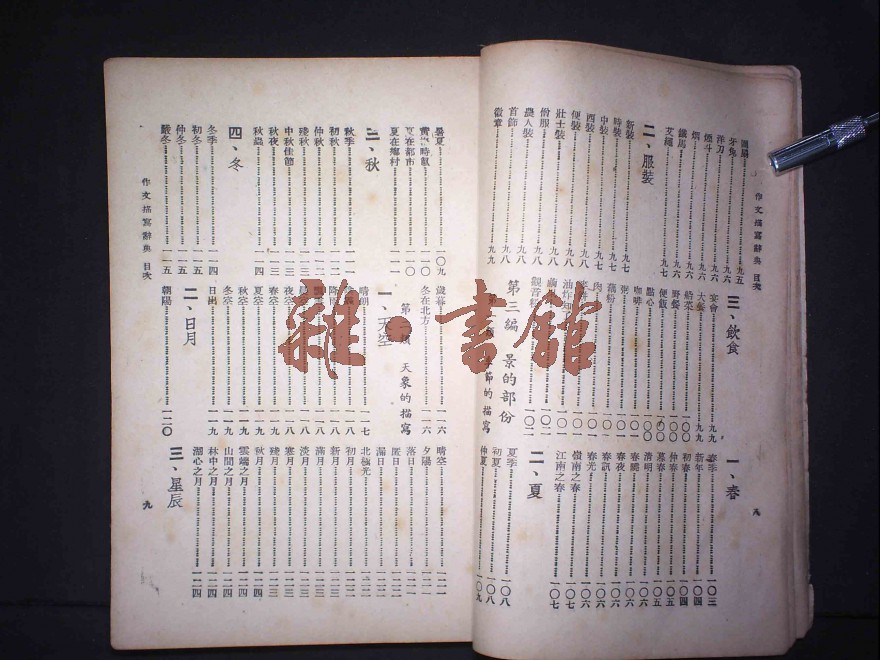 作文描寫辭典 目次
八
牙兔…………九六
洋刀…………九六
煙斗…………九六
煙…………九六
鐵馬…………九六
艾繩…………九七
二、服裝
新裝…………九七
時裝…………九七
中裝…………九七
西裝…………九八
便裝…………九八
壯士裝…………九八
僧服…………九八
農人裝…………九八
首飾…………九八
徽章…………九九
三、飲食
宴會…………九九
大餐…………九九
船菜…………一〇〇
野餐…………一〇〇
便飯…………一〇〇
點心…………一〇〇
咖啡…………一〇一
粥…………一〇一
藕粉…………一〇一
第三編 景的部份
節的描寫
一、春
春季…………一〇三
新年…………一〇四
初春…………一〇四
仲春…………一〇五
暮春…………一〇五
清明…………一〇六
春曉…………一〇六
春夜…………一〇六
春訊…………一〇六
春光…………一〇六
嶺南之春…………一〇七
江南之春…………一〇七
二、夏
夏季…………一〇八
初夏…………一〇八
仲夏…………一〇九
暑夏…………一〇九
黃梅時節…………一一〇
夏在都市…………一一〇
夏在鄉村…………一一一
三、秋
秋季…………一一一
初秋…………一一二
仲秋…………一一二
殘秋…………一一三
中秋佳節…………一一三
秋夜…………一一三
秋蟲…………一一四
四、冬
冬季…………一一四
初冬…………一一五
仲冬…………一一五
嚴冬…………一一五
歲暮…………一一六
冬在北方…………一一六
天象的描寫
一、天空
晴朗…………一一七
夜空…………一一八
春空…………一一九
夏空…………一一九
秋空…………一一九
冬空…………一一九
二、日月
日出…………一一九
朝陽…………一二〇
晴空…………一二一
夕陽…………一二一
落日…………一二一
匿日…………一二二
漏日…………一二二
北極光…………一二二
初月…………一二二
新月…………一二二
滿月…………一二三
淡月…………一二三
寒月…………一二三
殘月…………一二三
秋月…………一二四
雲端之月…………一二四
山間之月…………一二四
林中之月…………一二四
湖心之月…………一二四
三、星辰
作文描寫辭典 目次
九
雜·書館